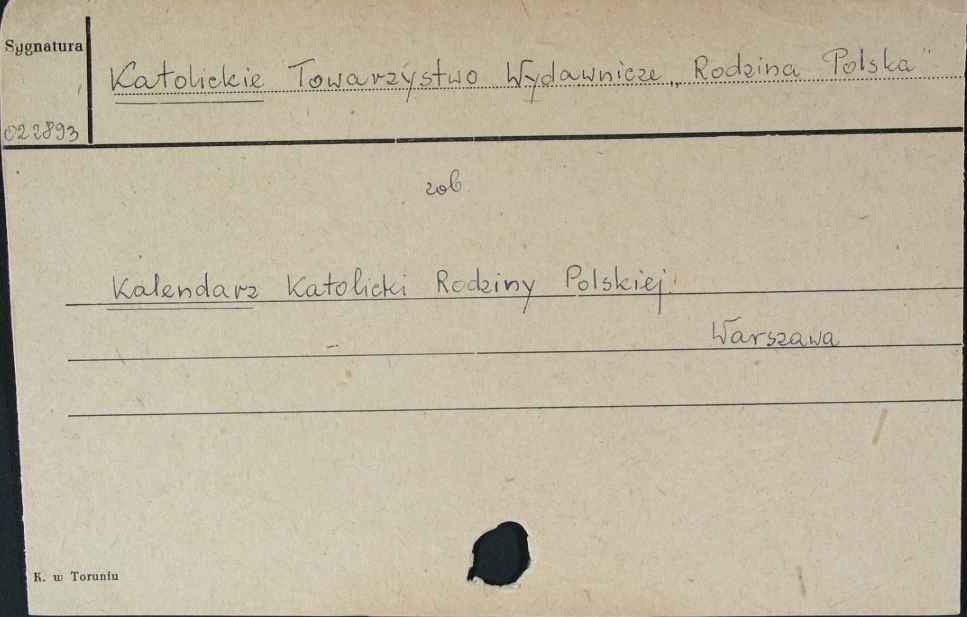 Sygnatura
Katolickie Towarzystwo Wydawnicze „Rodzina Polska"
022893
zob.
Kalendarz Katolicki Rodziny Polskiej.
Warszawa
K. w Toruniu